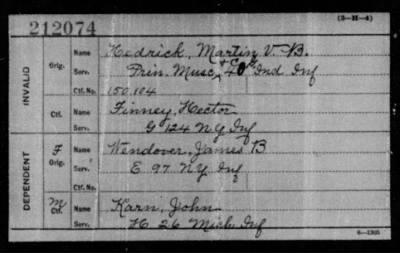 212074
(3-H-4)
INVALID
Orig.
Name Hedrick, Martin V. B.
Serv. Prin. Musc. & C 40 Ind Inf
Ctf. No. 150,104
Ctf.
Name Finney, Hector
Serv. G 124 N Y Inf
DEPENDENT
F
Orig.
Name Wendover, James B
Serv. E 97 N.Y. Inf
Ctf. No.
M
Ctf.
Name Karn, John
Serv. H 26 Mich Inf
6-1305